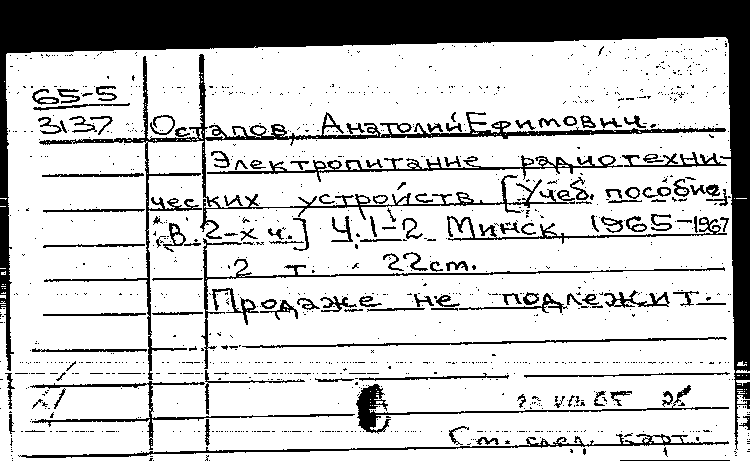 65-5
3137
Остапов, Анатолий Ефимович.
Электропитание радиотехни-
ческих устройств. [Учеб. пособие,
В 2-х ч.] Ч.1-2 Минск, 1965-1967
2 т. 22 см.
Продаже не подлежит.
См. след. карт.